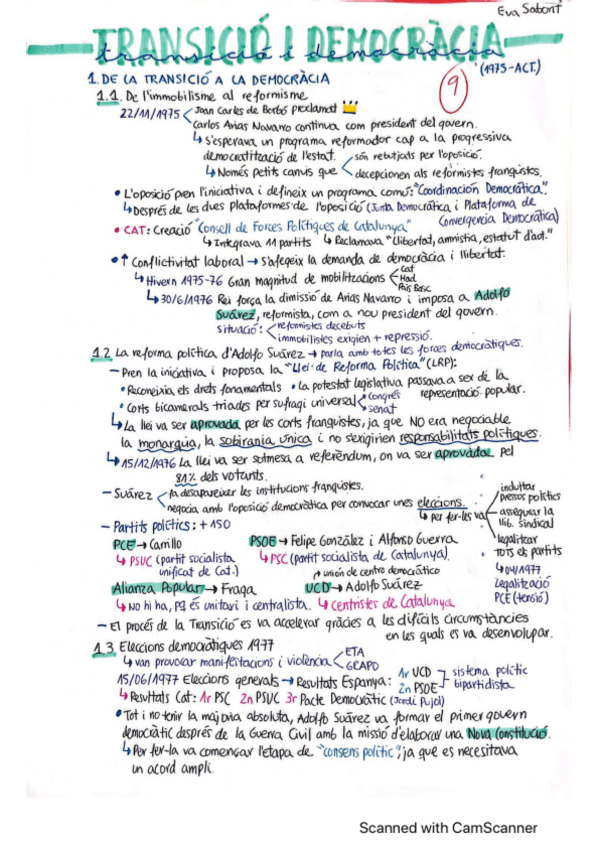 Eva Saborit
TRANSICIÓ I DEMOCRÀCIA
transició i democràcia
(1975-ACT.)
9
1. DE LA TRANSICIÓ A LA DEMOCRÀCIA
1.1. De l'immobilisme al reformisme
22/11/1975 Joan Carles de Borbó proclamat
Carlos Arias Navarro continua com president del govern.
↳ S'esperava un programa reformador cap a la progressiva
democratització de l'estat.
són rebutjats per l'oposició.
↳ Només petits canvis que
decepcionen als reformistes franquistes.
• L'oposició pren l'iniciativa i defineix un programa comú: "Coordinación Democrática".
↳ Després de les dues plataformes de l'oposició (Junta Democràtica i Plataforma de
Convergencia Democràtica)
• CAT: Creació "Consell de Forces Polítiques de Catalunya"
↳ Integrava 11 partits ↳ Reclamava "Llibertat, amnistia, estatut d'aut."
• ↑ Conflictivitat laboral → s'afegeix la demanda de democràcia i llibertat.
↳ Hivern 1975-76 Gran magnitud de mobilitzacions
Cat
Mad
País Basc
↳ 30/6/1976 Rei força la dimissió de Arias Navarro i imposa a Adolfo
Suárez, reformista, com a nou president del govern.
situació: reformistes decebuts
immobilistes exigien + repressió.
1.2 La reforma política d'Adolfo Suárez → parla amb totes les forces democràtiques.
- Pren la iniciativa i proposa la "Llei de Reforma Política" (LRP):
• Reconeixia els drets fonamentals • la potestat legislativa passava a ser de la
representació popular.
• Corts bicamerals triades per sufragi universal
congrés
senat
↳ La llei va ser aprovada per les corts franquistes, ja que NO era negociable
la monarquia, la sobirania única i no s'exigirien responsabilitats polítiques.
↳ 15/12/1976 La llei va ser sotmesa a referèndum, on va ser aprovada pel
81% dels votants.
- Suárez
fa desaparèixer les institucions franquistes.
negocia amb l'oposició democràtica per convocar unes eleccions.
↳ per fer-les va
indultar
presos polítics
assegurar la
llib. sindical
legalitzar
tots els partits
↳ 04/1977
Legalització
PCE (tensió)
- Partits polítics: + 150
PCE → Carrillo
↳ PSUC (partit socialista
unificat de Cat.)
PSOE → Felipe González i Alfonso Guerra
↳ PSC (partit socialista de Catalunya).
Alianza Popular → Fraga
↳ NO hi ha, PQ és unitari i centralista.
unión de centro democrático
UCD → Adolfo Suárez
↳ Centristes de Catalunya
- El procés de la Transició es va accelerar gràcies a les difícils circumstàncies
en les quals es va desenvolupar.
1.3 Eleccions democràtiques 1977
↳ van provocar manifestacions i violència
ETA
GRAPO
15/06/1977 Eleccions generals → Resultats Espanya:
1r UCD
2n PSOE
sistema polític
bipartidista
↳ Resultats Cat: 1r PSC 2n PSUC 3r Pacte Democràtic (Jordi Pujol)
• Tot i no tenir la majoria absoluta, Adolfo Suárez va formar el primer govern
democràtic després de la Guerra Civil amb la missió d'elaborar una Nova Constitució.
↳ Per fer-la va començar l'etapa de "consens polític", ja que es necesitava
un acord ampli.
Scanned with CamScanner